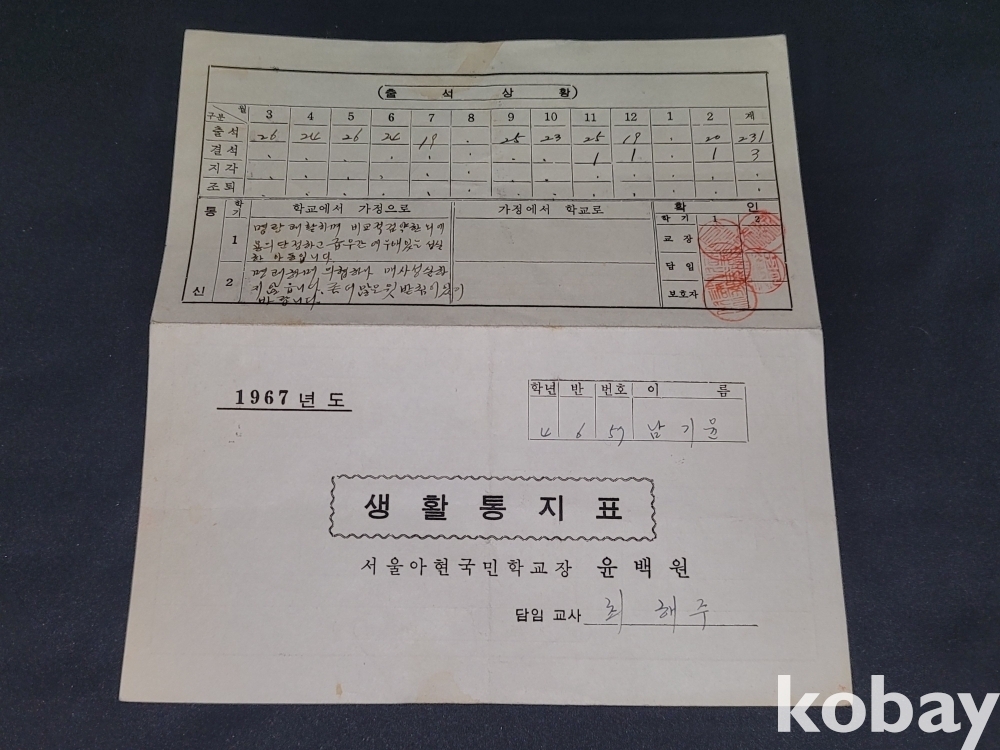 (출 석 상 황)
구분 월 3 4 5 6 7 8 9 10 11 12 1 2 계
출석 26 24 26 24 19 . 25 23 25 19 . 20 231
결석 . . . . . . . . 1 1 . 1 3
지각 . . . . . . . . . . . . .
조퇴 . . . . . . . . . . . . .
통신 학기 학교에서 가정으로 가정에서 학교로 확인
학기 1 2
1 명랑 쾌활하며 비교적
용의단정하고
한 아동입니다.
교장
담임
2 매사성실하
지않습니다. 좀더 많은 뒷받침이
바랍니다.
보호자
1967년도
학년 반 번호 이름
4 6 57 남기윤
생활통지표
서울아현국민학교장 윤백원
담임 교사 최해주
kobay